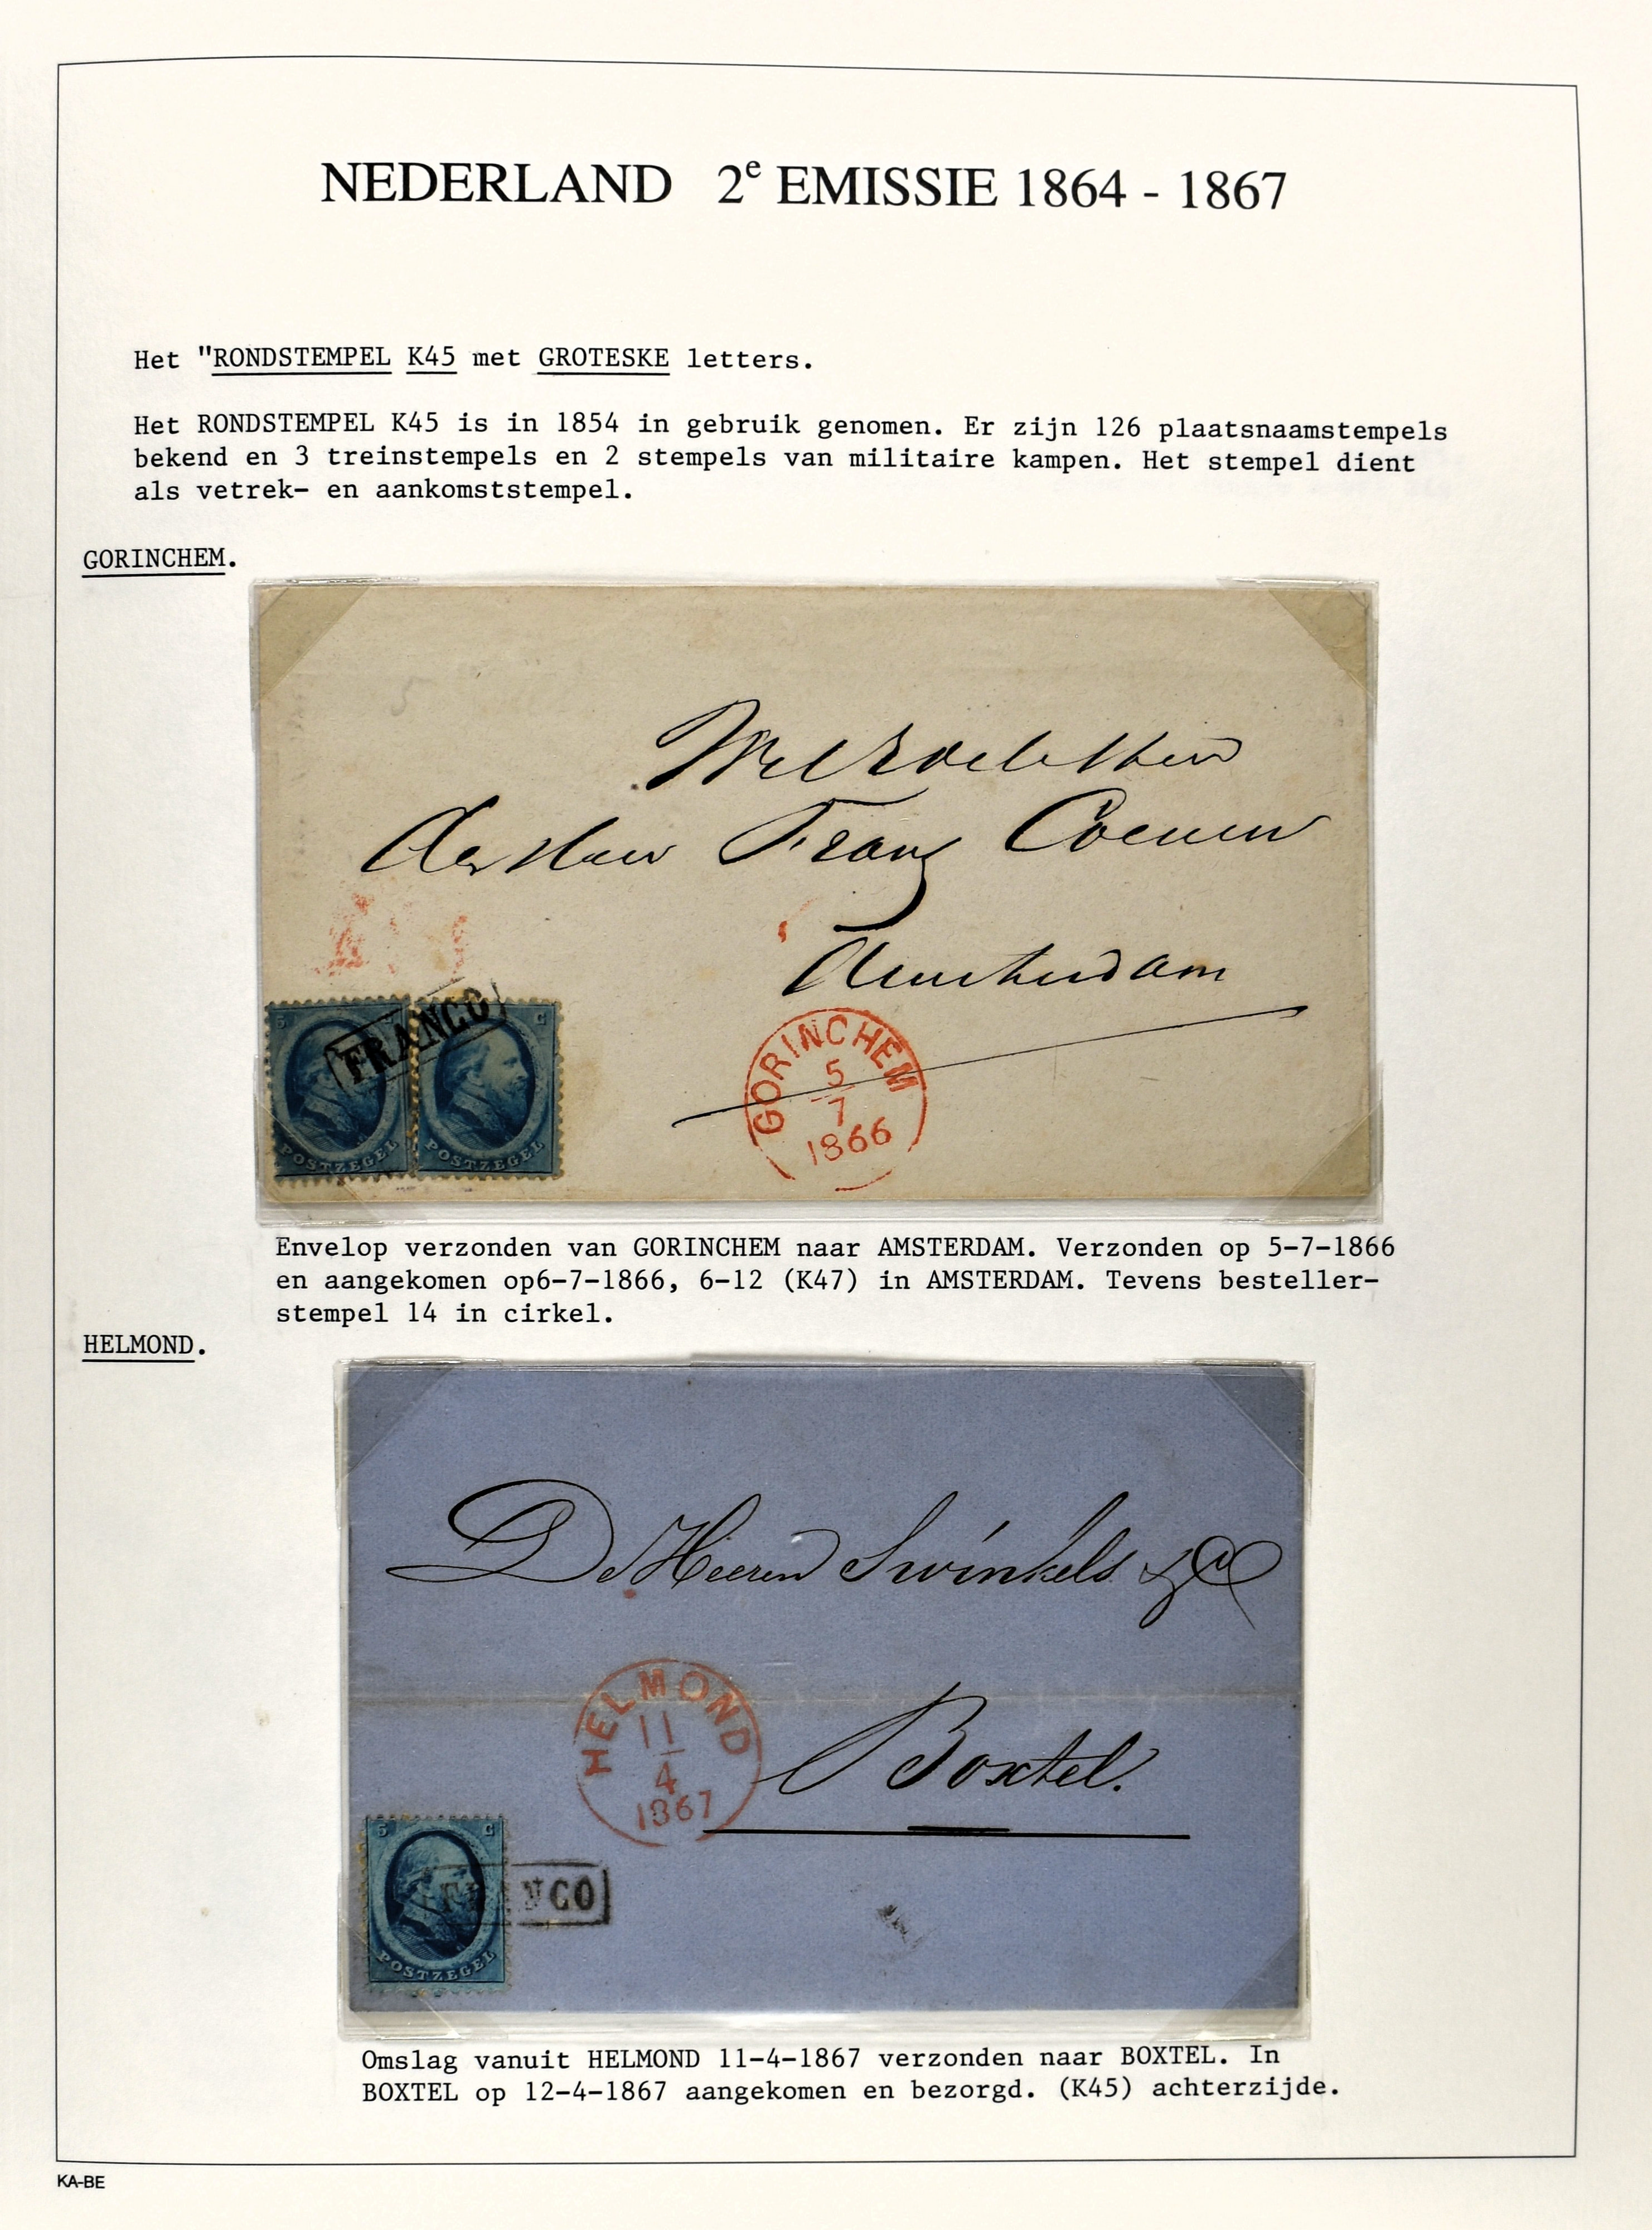 NEDERLAND 2e EMISSIE 1864 - 1867
Het "RONDSTEMPEL K45 met GROTESKE letters.
Het RONDSTEMPEL K45 is in 1854 in gebruik genomen. Er zijn 126 plaatsnaamstempels
bekend en 3 treinstempels en 2 stempels van militaire kampen. Het stempel dient
als vetrek- en aankomststempel.
GORINCHEM.
5
Frans Coenen
Amsterdam
FRANCO
5 C
POSTZEGEL
POSTZEGEL
GORINCHEM
5
7
1866
Envelop verzonden van GORINCHEM naar AMSTERDAM. Verzonden op 5-7-1866
en aangekomen op6-7-1866, 6-12 (K47) in AMSTERDAM. Tevens besteller-
stempel 14 in cirkel.
HELMOND.
De Heeren Swinkels & Co
HELMOND
11
4
1867
Boxtel.
5 C
FRANCO
POSTZEGEL
Omslag vanuit HELMOND 11-4-1867 verzonden naar BOXTEL. In
BOXTEL op 12-4-1867 aangekomen en bezorgd. (K45) achterzijde.
KA-BE